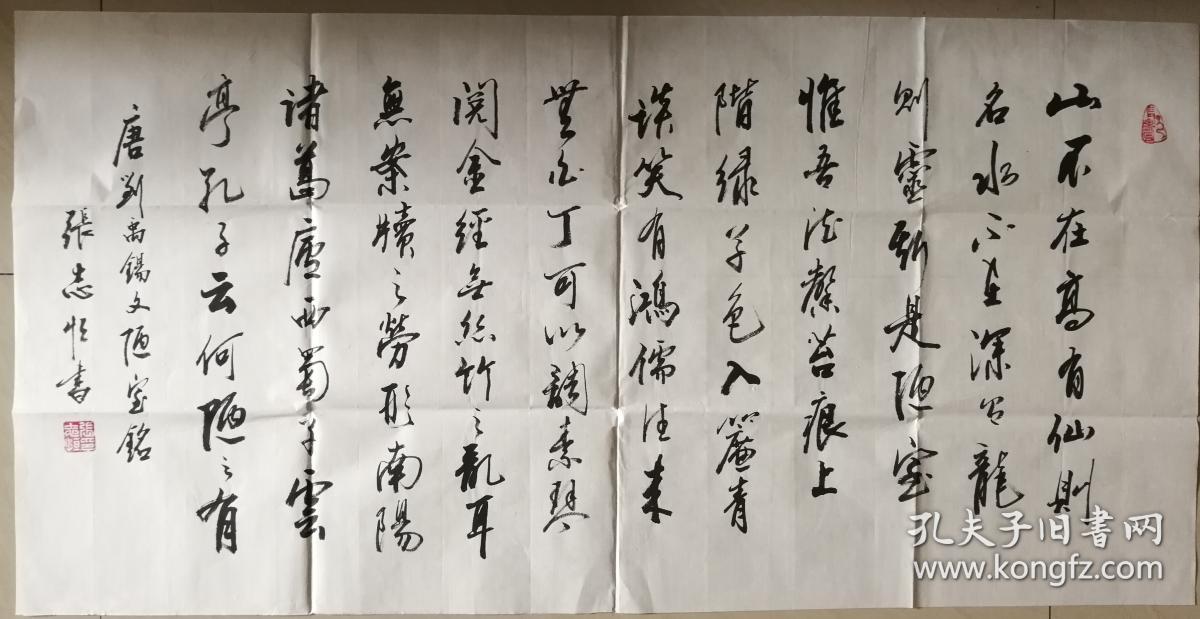 山不在高有仙則
名水不在深有龍
則靈斯是陋室
惟吾德馨苔痕上
階緑草色入簾青
談笑有鴻儒往來
無白丁可以調素琴
閱金經無絲竹之亂耳
無案牘之勞形南陽
諸葛廬西蜀子雲
亭孔子云何陋之有
唐劉禹錫文陋室銘
張志恒書
孔夫子旧书网
www.kongfz.com